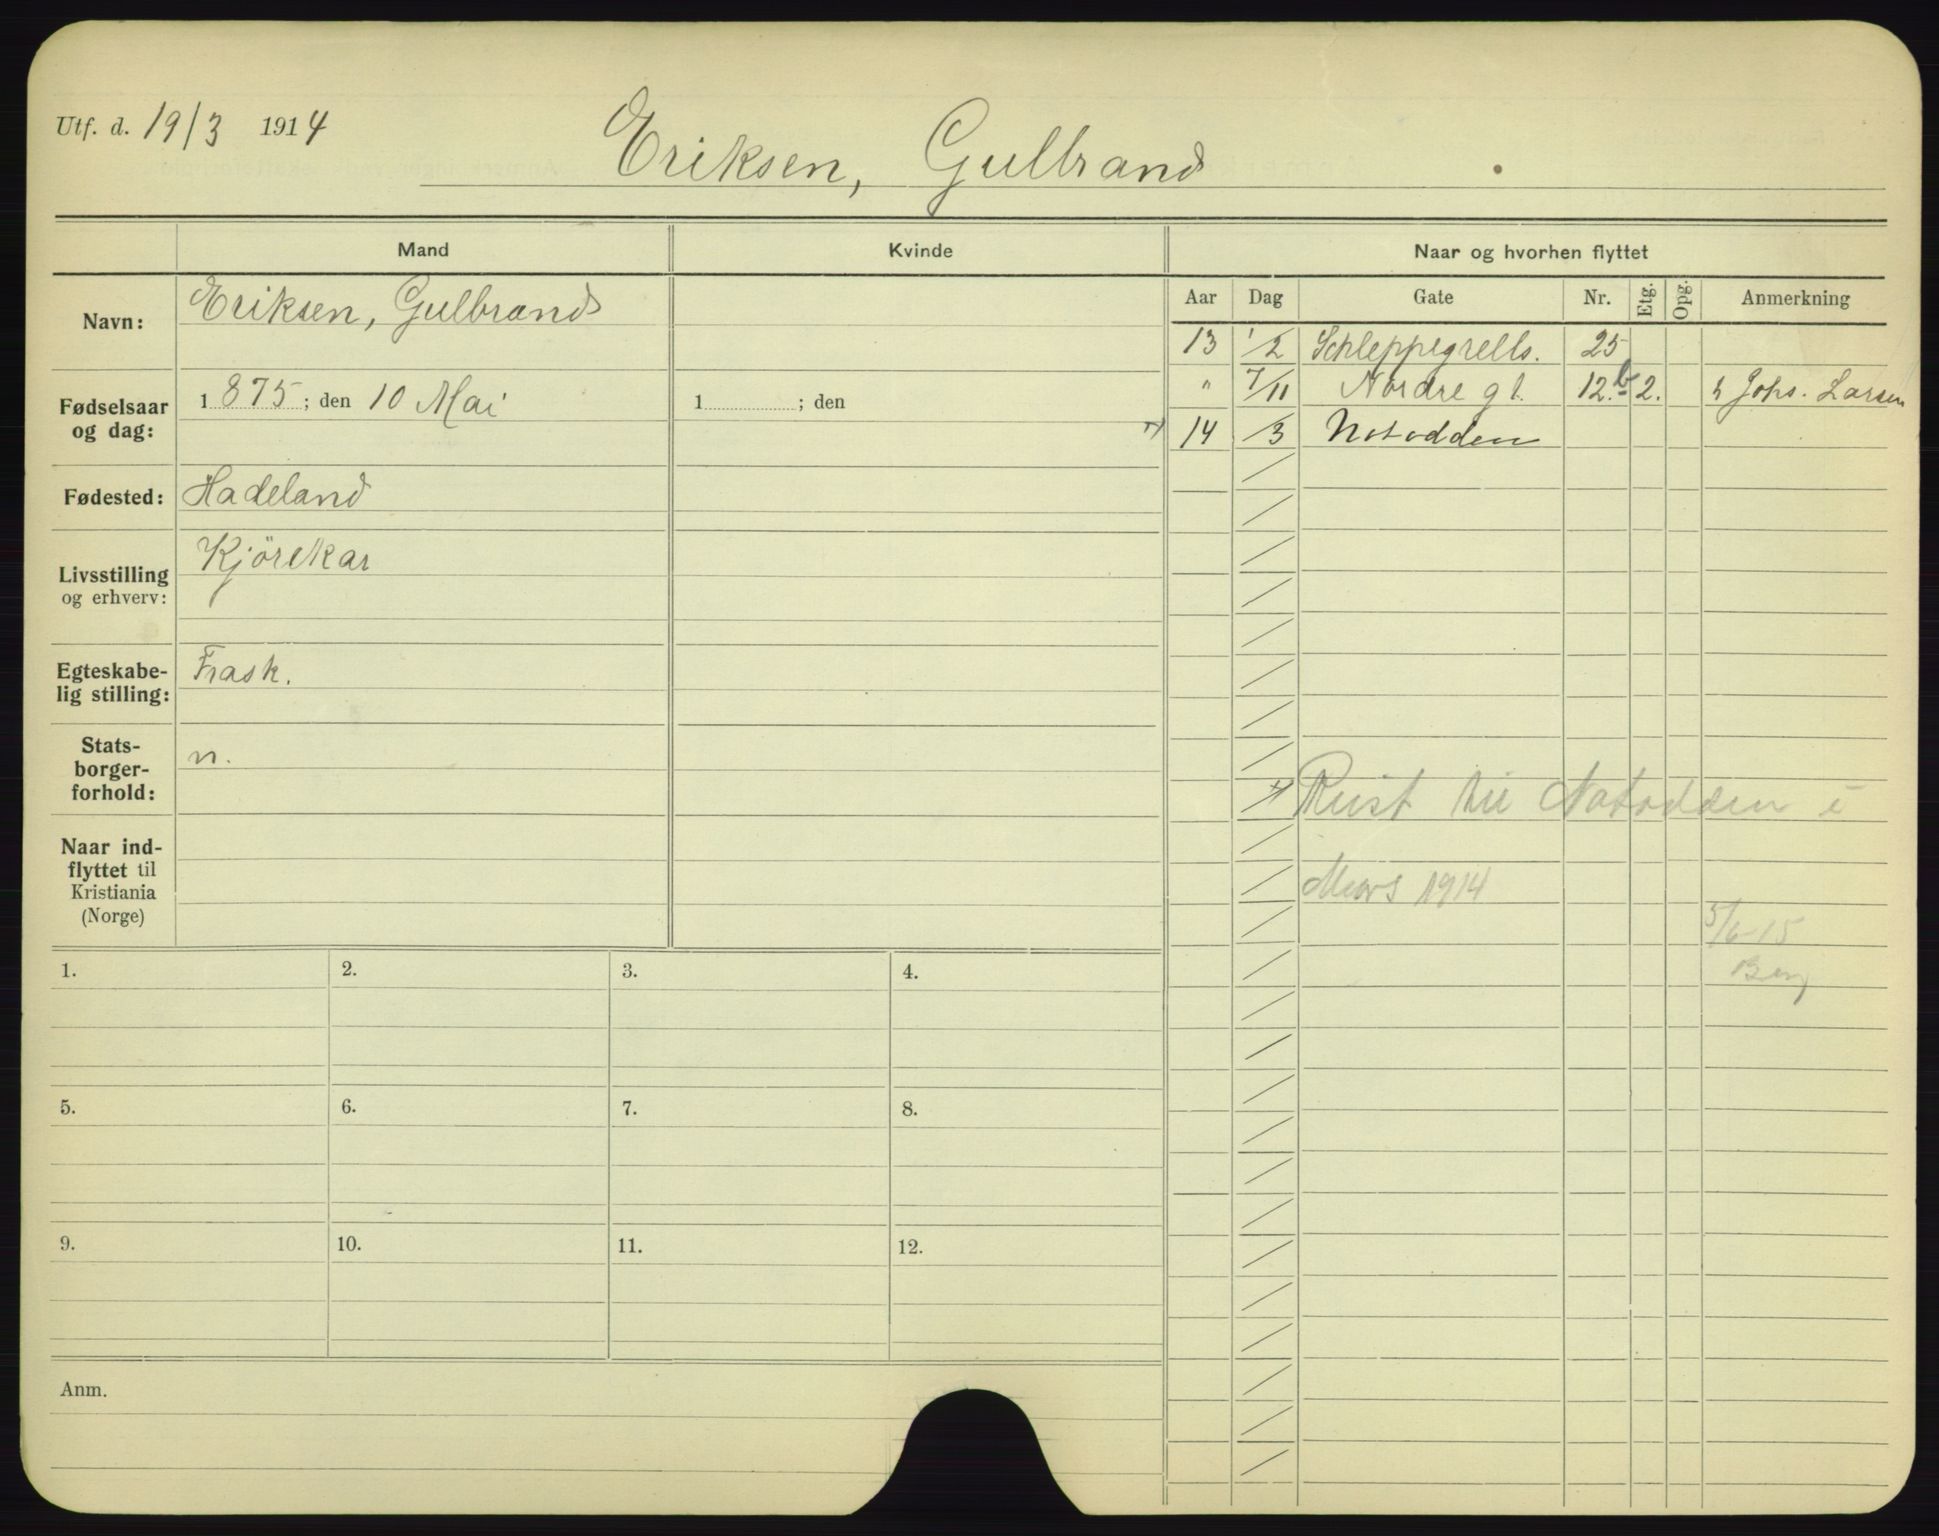 Utf. d. 19/3 1914
Eriksen, Gulbrand
Mand
Kvinde
Naar og hvorhen flyttet
Navn:
Eriksen, Gulbrand
Aar Dag Gate Nr. Etg. Opg. Anmerkning
13 1/2 Schleppegrells. 25
" 7/11 Nordre gt. 12.b 2. h Johs. Larsen
14 /3 Notodden
Fødselsaar
og dag:
1 875 ; den 10 Mai
1 ; den
Fødested:
Hadeland
Livsstilling
og erhverv:
Kjörekar
Egteskabe-
lig stilling:
Frask.
Stats-
borger-
forhold:
n.
Naar ind-
flyttet til
Kristiania
(Norge)
Reist til Notodden i
Mars 1914
5/6-15
Berg
1. 2. 3. 4.
5. 6. 7. 8.
9. 10. 11. 12.
Anm.